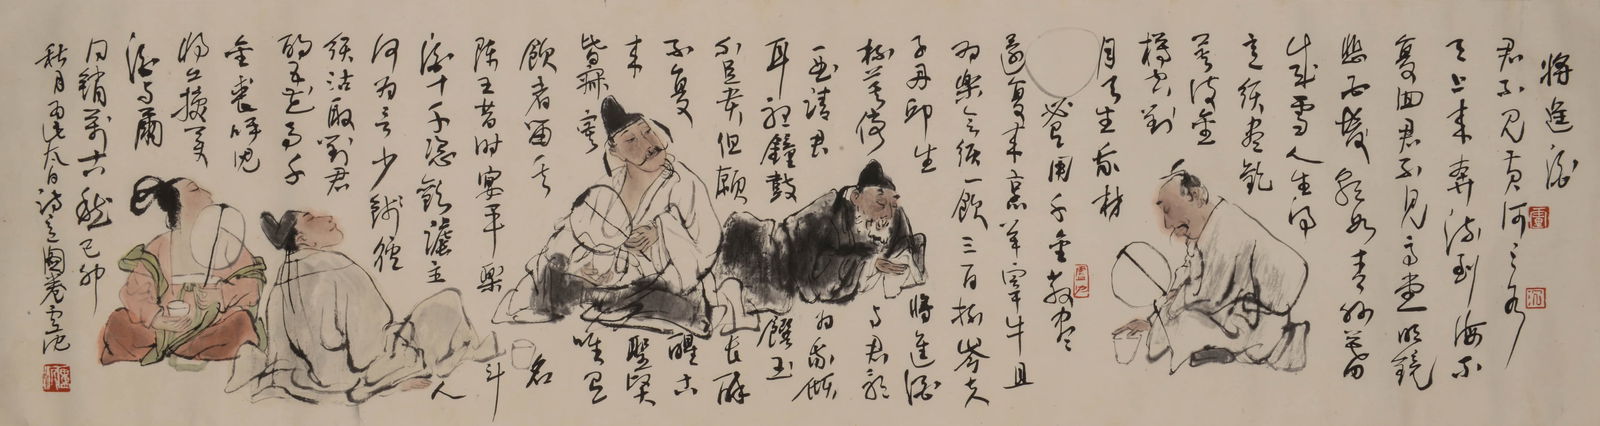 将進酒
君不见黄河之水
天上来奔流到海不
复回君不见高堂明镜
悲白髮朝如青丝暮
成雪人生得
意须尽歡
莫使金
樽空對
月天生我材
必有用千金散尽
還复来烹羊宰牛且
为樂会须一飲三百杯岑夫
子丹邱生將進酒
杯莫停与君歌
一曲請君为我倾
耳听鐘鼓饌玉
不足贵但願长醉
不复醒古
来聖贤
皆寂寞唯有
飲者留其名
陈王昔时宴平樂斗
酒十千恣歡謔主人
何为言少钱径
须沽取對君
酌五花马千
金裘呼儿
将出换美
酒与爾
同銷萬古愁己卯
秋月太白詩意圖卷